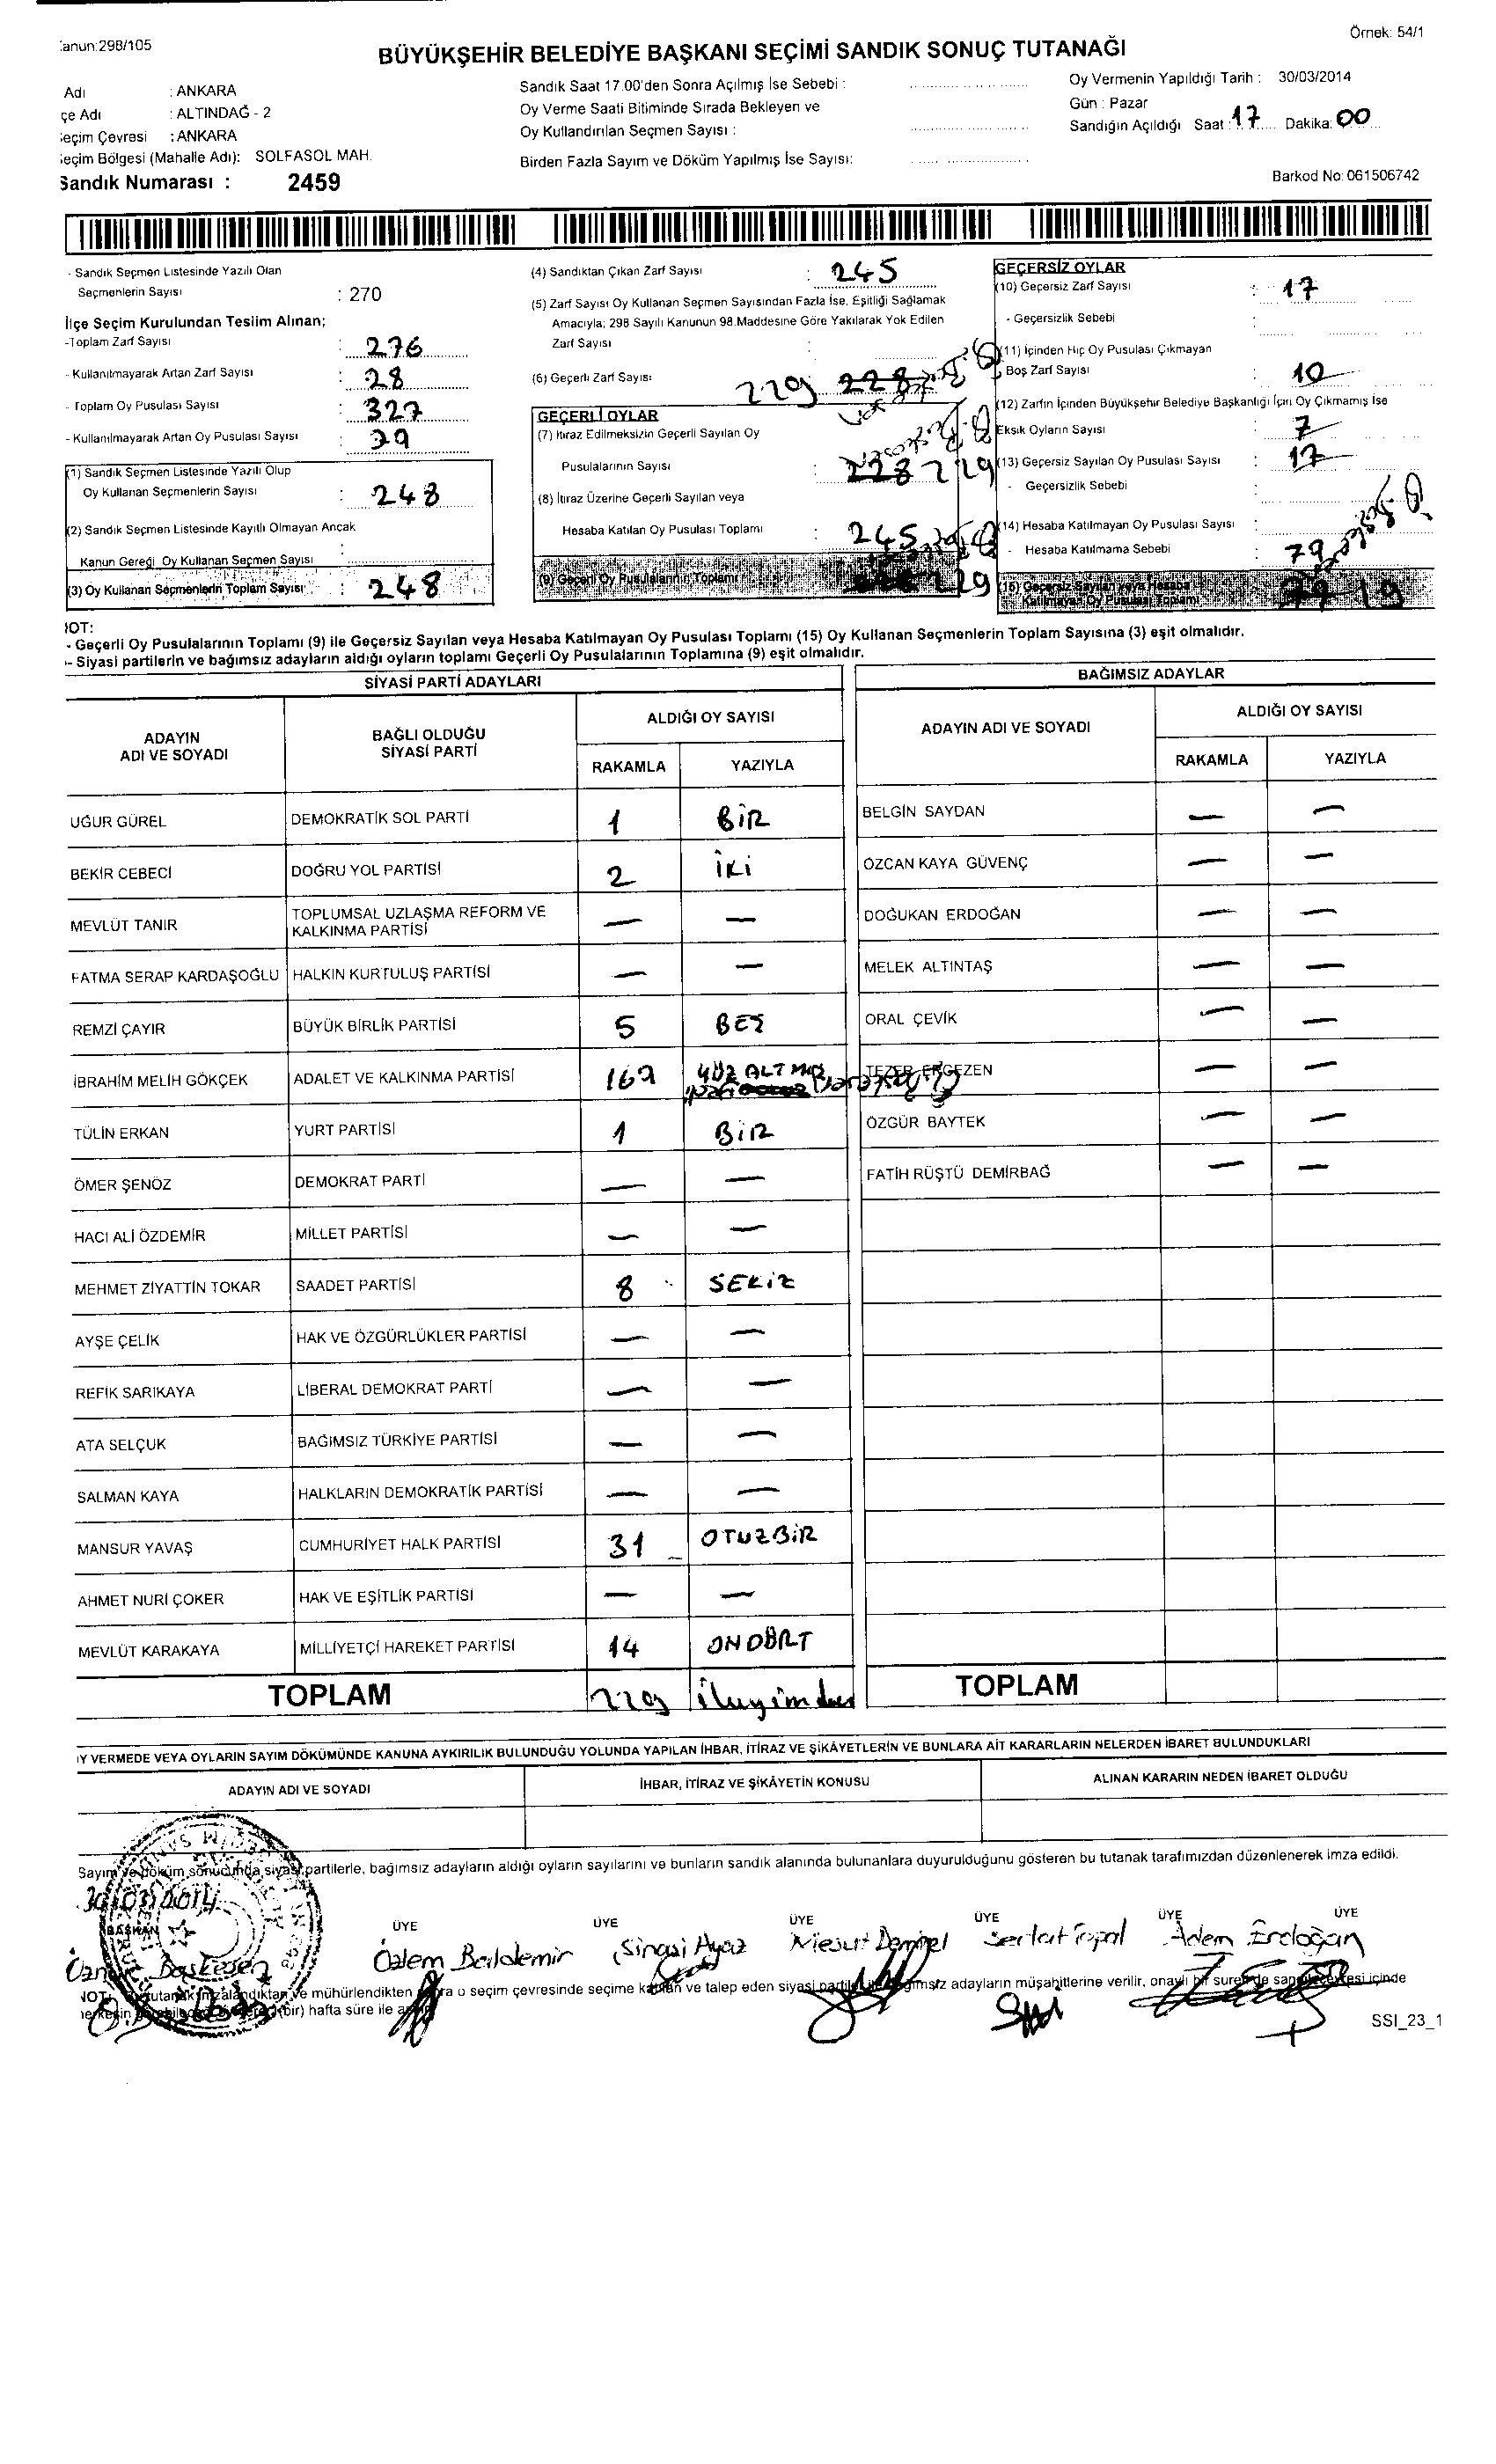 Örnek: 54/1
anun:298/105
BÜYÜKŞEHİR BELEDİYE BAŞKANI SEÇİMİ SANDIK SONUÇ TUTANAĞI
Adı : ANKARA
çe Adı : ALTINDAĞ - 2
eçim Çevresi : ANKARA
eçim Bölgesi (Mahalle Adı): SOLFASOL MAH.
Sandık Numarası : 2459
Sandık Saat 17.00'den Sonra Açılmış İse Sebebi :
Oy Verme Saati Bitiminde Sırada Bekleyen ve
Oy Kullandırılan Seçmen Sayısı :
Birden Fazla Sayım ve Döküm Yapılmış İse Sayısı:
Oy Vermenin Yapıldığı Tarih : 30/03/2014
Gün : Pazar
Sandığın Açıldığı Saat : 17 Dakika: 00
Barkod No: 061506742
- Sandık Seçmen Listesinde Yazılı Olan
Seçmenlerin Sayısı : 270
İlçe Seçim Kurulundan Teslim Alınan;
-Toplam Zarf Sayısı : 276
- Kullanılmayarak Artan Zarf Sayısı : 28
- Toplam Oy Pusulası Sayısı : 327
- Kullanılmayarak Artan Oy Pusulası Sayısı : 79
(1) Sandık Seçmen Listesinde Yazılı Olup
Oy Kullanan Seçmenlerin Sayısı : 248
(2) Sandık Seçmen Listesinde Kayıtlı Olmayan Ancak
Kanun Gereği Oy Kullanan Seçmen Sayısı :
(3) Oy Kullanan Seçmenlerin Toplam Sayısı : 248
(4) Sandıktan Çıkan Zarf Sayısı : 245
(5) Zarf Sayısı Oy Kullanan Seçmen Sayısından Fazla İse, Eşitliği Sağlamak
Amacıyla; 298 Sayılı Kanunun 98.Maddesine Göre Yakılarak Yok Edilen
Zarf Sayısı :
(6) Geçerli Zarf Sayısı 229 228
GEÇERLİ OYLAR
(7) İtiraz Edilmeksizin Geçerli Sayılan Oy
Pusulalarının Sayısı : 228 229
(8) İtiraz Üzerine Geçerli Sayılan veya
Hesaba Katılan Oy Pusulası Toplamı : 245
(9) Geçerli Oy Pusulalarının Toplamı 229
GEÇERSİZ OYLAR
(10) Geçersiz Zarf Sayısı : 17
- Geçersizlik Sebebi :
(11) İçinden Hiç Oy Pusulası Çıkmayan
Boş Zarf Sayısı : 10
(12) Zarfın İçinden Büyükşehir Belediye Başkanlığı İçin Oy Çıkmamış İse
Eksik Oyların Sayısı : 7
(13) Geçersiz Sayılan Oy Pusulası Sayısı : 17
- Geçersizlik Sebebi :
(14) Hesaba Katılmayan Oy Pusulası Sayısı :
- Hesaba Katılmama Sebebi : 79
(15) Geçersiz Sayılan veya Hesaba
Katılmayan Oy Pusulası Toplamı 19
NOT:
- Geçerli Oy Pusulalarının Toplamı (9) ile Geçersiz Sayılan veya Hesaba Katılmayan Oy Pusulası Toplamı (15) Oy Kullanan Seçmenlerin Toplam Sayısına (3) eşit olmalıdır.
- Siyasi partilerin ve bağımsız adayların aldığı oyların toplamı Geçerli Oy Pusulalarının Toplamına (9) eşit olmalıdır.
SİYASİ PARTİ ADAYLARI
ADAYIN ADI VE SOYADI BAĞLI OLDUĞU SİYASİ PARTİ ALDIĞI OY SAYISI
RAKAMLA YAZIYLA
UĞUR GÜREL DEMOKRATİK SOL PARTİ 1 BİR
BEKİR CEBECİ DOĞRU YOL PARTİSİ 2 İKİ
MEVLÜT TANIR TOPLUMSAL UZLAŞMA REFORM VE KALKINMA PARTİSİ — —
FATMA SERAP KARDAŞOĞLU HALKIN KURTULUŞ PARTİSİ — —
REMZİ ÇAYIR BÜYÜK BİRLİK PARTİSİ 5 BEŞ
İBRAHİM MELİH GÖKÇEK ADALET VE KALKINMA PARTİSİ 167 YÜZ ALTMIŞ
TÜLİN ERKAN YURT PARTİSİ 1 BİR
ÖMER ŞENÖZ DEMOKRAT PARTİ — —
HACI ALİ ÖZDEMİR MİLLET PARTİSİ — —
MEHMET ZİYATTİN TOKAR SAADET PARTİSİ 8 SEKİZ
AYŞE ÇELİK HAK VE ÖZGÜRLÜKLER PARTİSİ — —
REFİK SARIKAYA LİBERAL DEMOKRAT PARTİ — —
ATA SELÇUK BAĞIMSIZ TÜRKİYE PARTİSİ — —
SALMAN KAYA HALKLARIN DEMOKRATİK PARTİSİ — —
MANSUR YAVAŞ CUMHURİYET HALK PARTİSİ 31 OTUZBİR
AHMET NURİ ÇOKER HAK VE EŞİTLİK PARTİSİ — —
MEVLÜT KARAKAYA MİLLİYETÇİ HAREKET PARTİSİ 14 ONDÖRT
TOPLAM 229
BAĞIMSIZ ADAYLAR
ADAYIN ADI VE SOYADI ALDIĞI OY SAYISI
RAKAMLA YAZIYLA
BELGİN SAYDAN — —
ÖZCAN KAYA GÜVENÇ — —
DOĞUKAN ERDOĞAN — —
MELEK ALTINTAŞ — —
ORAL ÇEVİK — —
TEZER ERGEZEN — —
ÖZGÜR BAYTEK — —
FATİH RÜŞTÜ DEMİRBAĞ — —
TOPLAM
Y VERMEDE VEYA OYLARIN SAYIM DÖKÜMÜNDE KANUNA AYKIRILIK BULUNDUĞU YOLUNDA YAPILAN İHBAR, İTİRAZ VE ŞİKÂYETLERİN VE BUNLARA AİT KARARLARIN NELERDEN İBARET BULUNDUKLARI
ADAYIN ADI VE SOYADI İHBAR, İTİRAZ VE ŞİKÂYETİN KONUSU ALINAN KARARIN NEDEN İBARET OLDUĞU
Sayım ve döküm sonucunda siyasi partilerle, bağımsız adayların aldığı oyların sayılarını ve bunların sandık alanında bulunanlara duyurulduğunu gösteren bu tutanak tarafımızdan düzenlenerek imza edildi.
30/03/2014
BAŞKAN ÜYE ÜYE ÜYE ÜYE ÜYE ÜYE
Özlem Baldemir Şinasi Ayaz Mesut Demirel Serhat Topal Adem Erdoğan
NOT: tutanak imzalandıktan ve mühürlendikten sonra o seçim çevresinde seçime katılan ve talep eden siyasi partiler ile bağımsız adayların müşahitlerine verilir, onaylı bir sureti de sandık çevresi içinde
herkesin (bir) hafta süre ile
SSI_23_1